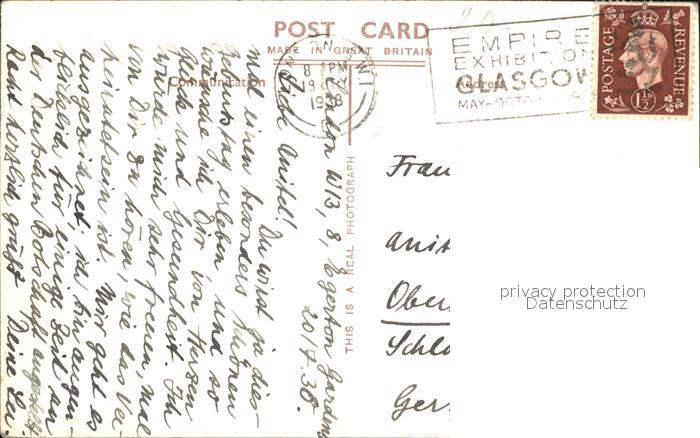 POST CARD
MADE IN GREAT BRITAIN
Communication
Address
LONDON W1
8 PM
19
1938
EMPIRE
EXHIBITION
GLASGOW
MAY-OCTOBER
POSTAGE
REVENUE
1½D
THIS IS A REAL PHOTOGRAPH
London W/3, 8, Egerton Gardens
20.IV.38.
Liebe Anita!
Du wirst ja dies-
mal einen besonders schönen
Geburtstag erleben und so
wünsche ich Dir von Herzen
Glück und Gesundheit. Ich
würde mich sehr freuen, mal
von Dir zu hören, wie das Ver-
heiratetsein ist. Mir geht es
ausgezeichnet, ich bin augen-
blicklich für einige Zeit an
der Deutschen Botschaft angestellt
Recht herzlich grüßt Deine
Frau
Ober
Schlo
Ger
privacy protection
Datenschutz